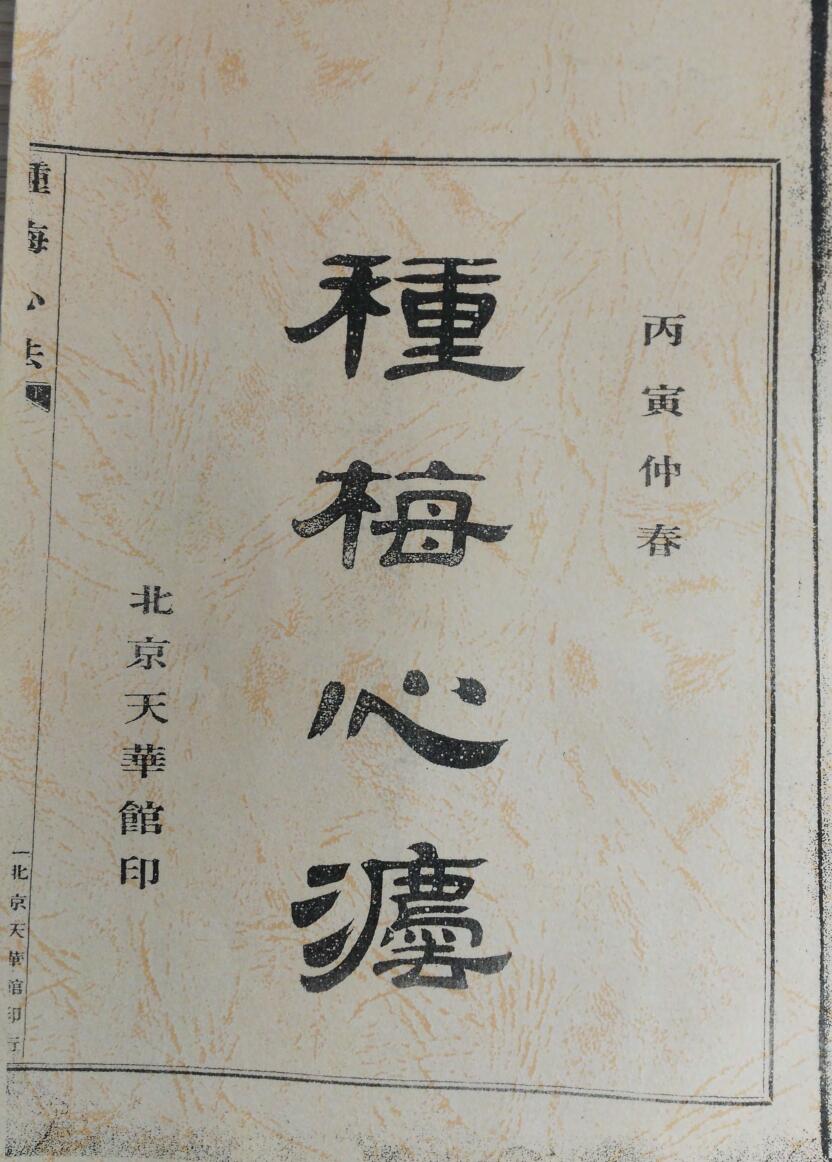 丙寅仲春
種梅心灋
北京天華館印
種梅心法
一北京天華館印行